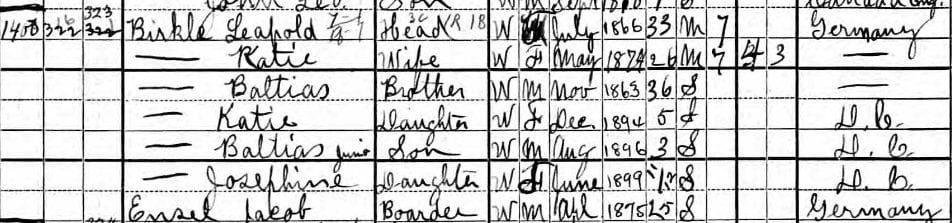 1400 322 323 Birkle Leapold Head W July 1866 33 M 7 Germany
— Katie Wife W F May 1874 26 M 7 4 3 —
— Baltias Brother W M Nov 1863 36 S —
— Katie Daughter W F Dec. 1894 5 S D. C.
— Baltias Junior Son W M Aug 1896 3 S D. C.
— Josephine Daughter W F June 1899 S D. C.
Ensel Jacob Boarder W M Apl 1875 25 S Germany